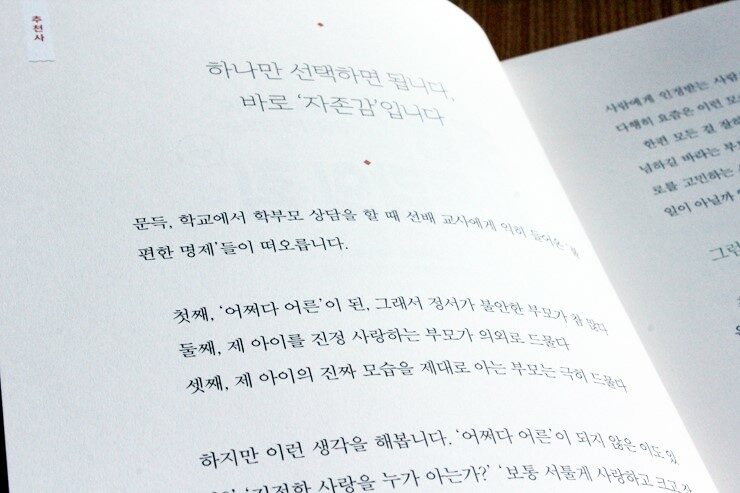 추천사
하나만 선택하면 됩니다,
바로 ‘자존감’입니다
문득, 학교에서 학부모 상담을 할 때 선배 교사에게 익히 들어온 ‘불
편한 명제’들이 떠오릅니다.
첫째, ‘어쩌다 어른’이 된, 그래서 정서가 불안한 부모가 참 많다
둘째, 제 아이를 진정 사랑하는 부모가 의외로 드물다
셋째, 제 아이의 진짜 모습을 제대로 아는 부모는 극히 드물다
하지만 이런 생각을 해봅니다. ‘어쩌다 어른’이 되지 않은 이도 있
사랑을 누가 아는가?’ ‘보통 서툴게 사랑하고
사람에게 인정받는 사람
다행히 요즘은 이런 모
한편 모든 걸 잘하
넘하길 바라는 부모
로를 고민하는
일이 아닐까
그런